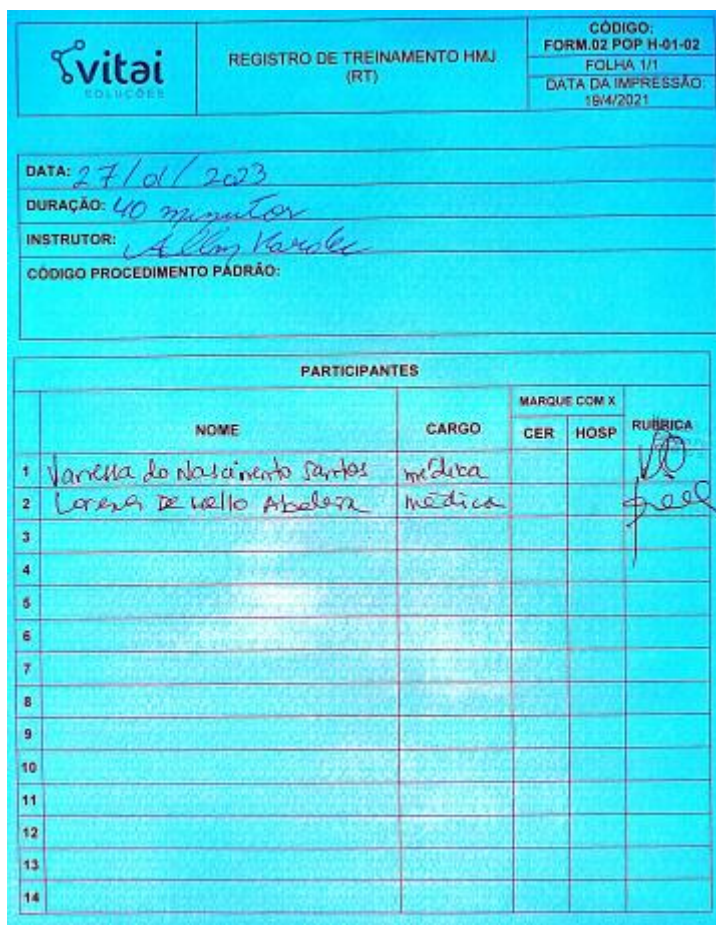 vitai
SOLUÇÕES
REGISTRO DE TREINAMENTO HMJ
(RT)
CÓDIGO:
FORM.02 POP H-01-02
FOLHA 1/1
DATA DA IMPRESSÃO:
19/4/2021
DATA: 27/01/2023
DURAÇÃO: 40 minutos
INSTRUTOR: Allan Kardec
CÓDIGO PROCEDIMENTO PADRÃO:
PARTICIPANTES
NOME CARGO MARQUE COM X RUBRICA
CER HOSP
1 Vanessa do Nascimento Santos médica
2 Lorena De Mello médica
3
4
5
6
7
8
9
10
11
12
13
14